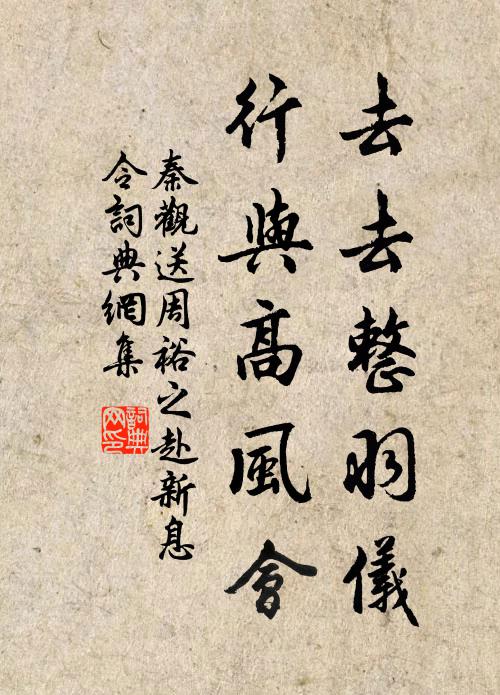 去去整羽儀
行與高風會
秦觀送周裕之赴新息
令詞典網集
詞典网印